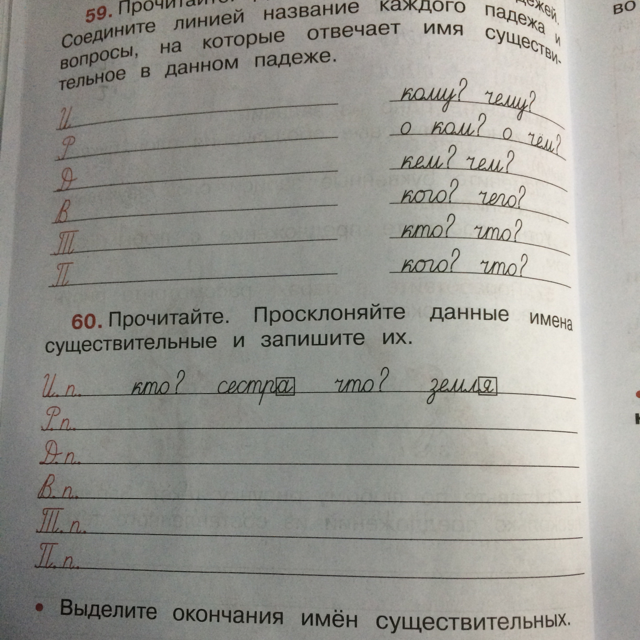 59. Прочитайте.
Соедините линией название каждого падежа и
вопросы, на которые отвечает имя существи-
тельное в данном падеже.
И кому? чему?
Р о ком? о чём?
Д кем? чем?
В кого? чего?
Т кто? что?
П кого? что?
60. Прочитайте. Просклоняйте данные имена
существительные и запишите их.
И. п. кто? сестра что? земля
Р. п.
Д. п.
В. п.
Т. п.
П. п.
• Выделите окончания имён существительных.
во